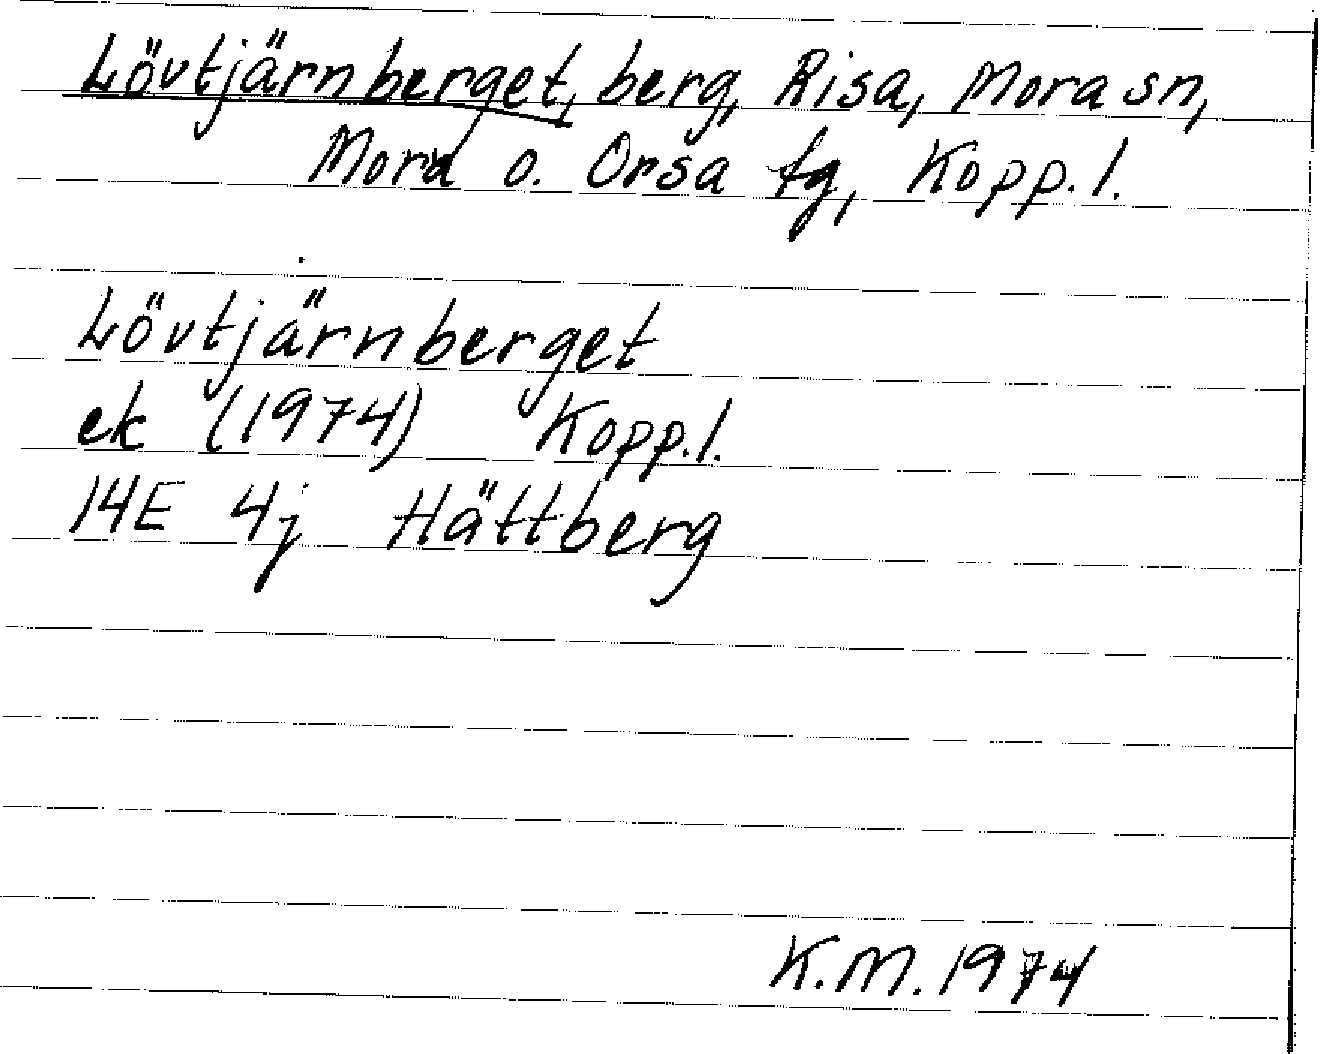 Lövtjärnberget, berg, Risa, Mora sn,
Mora o. Orsa tg, Kopp. l.
Lövtjärnberget
ek (1974) Kopp. l.
14E 4j Hättberg
K.M. 1974